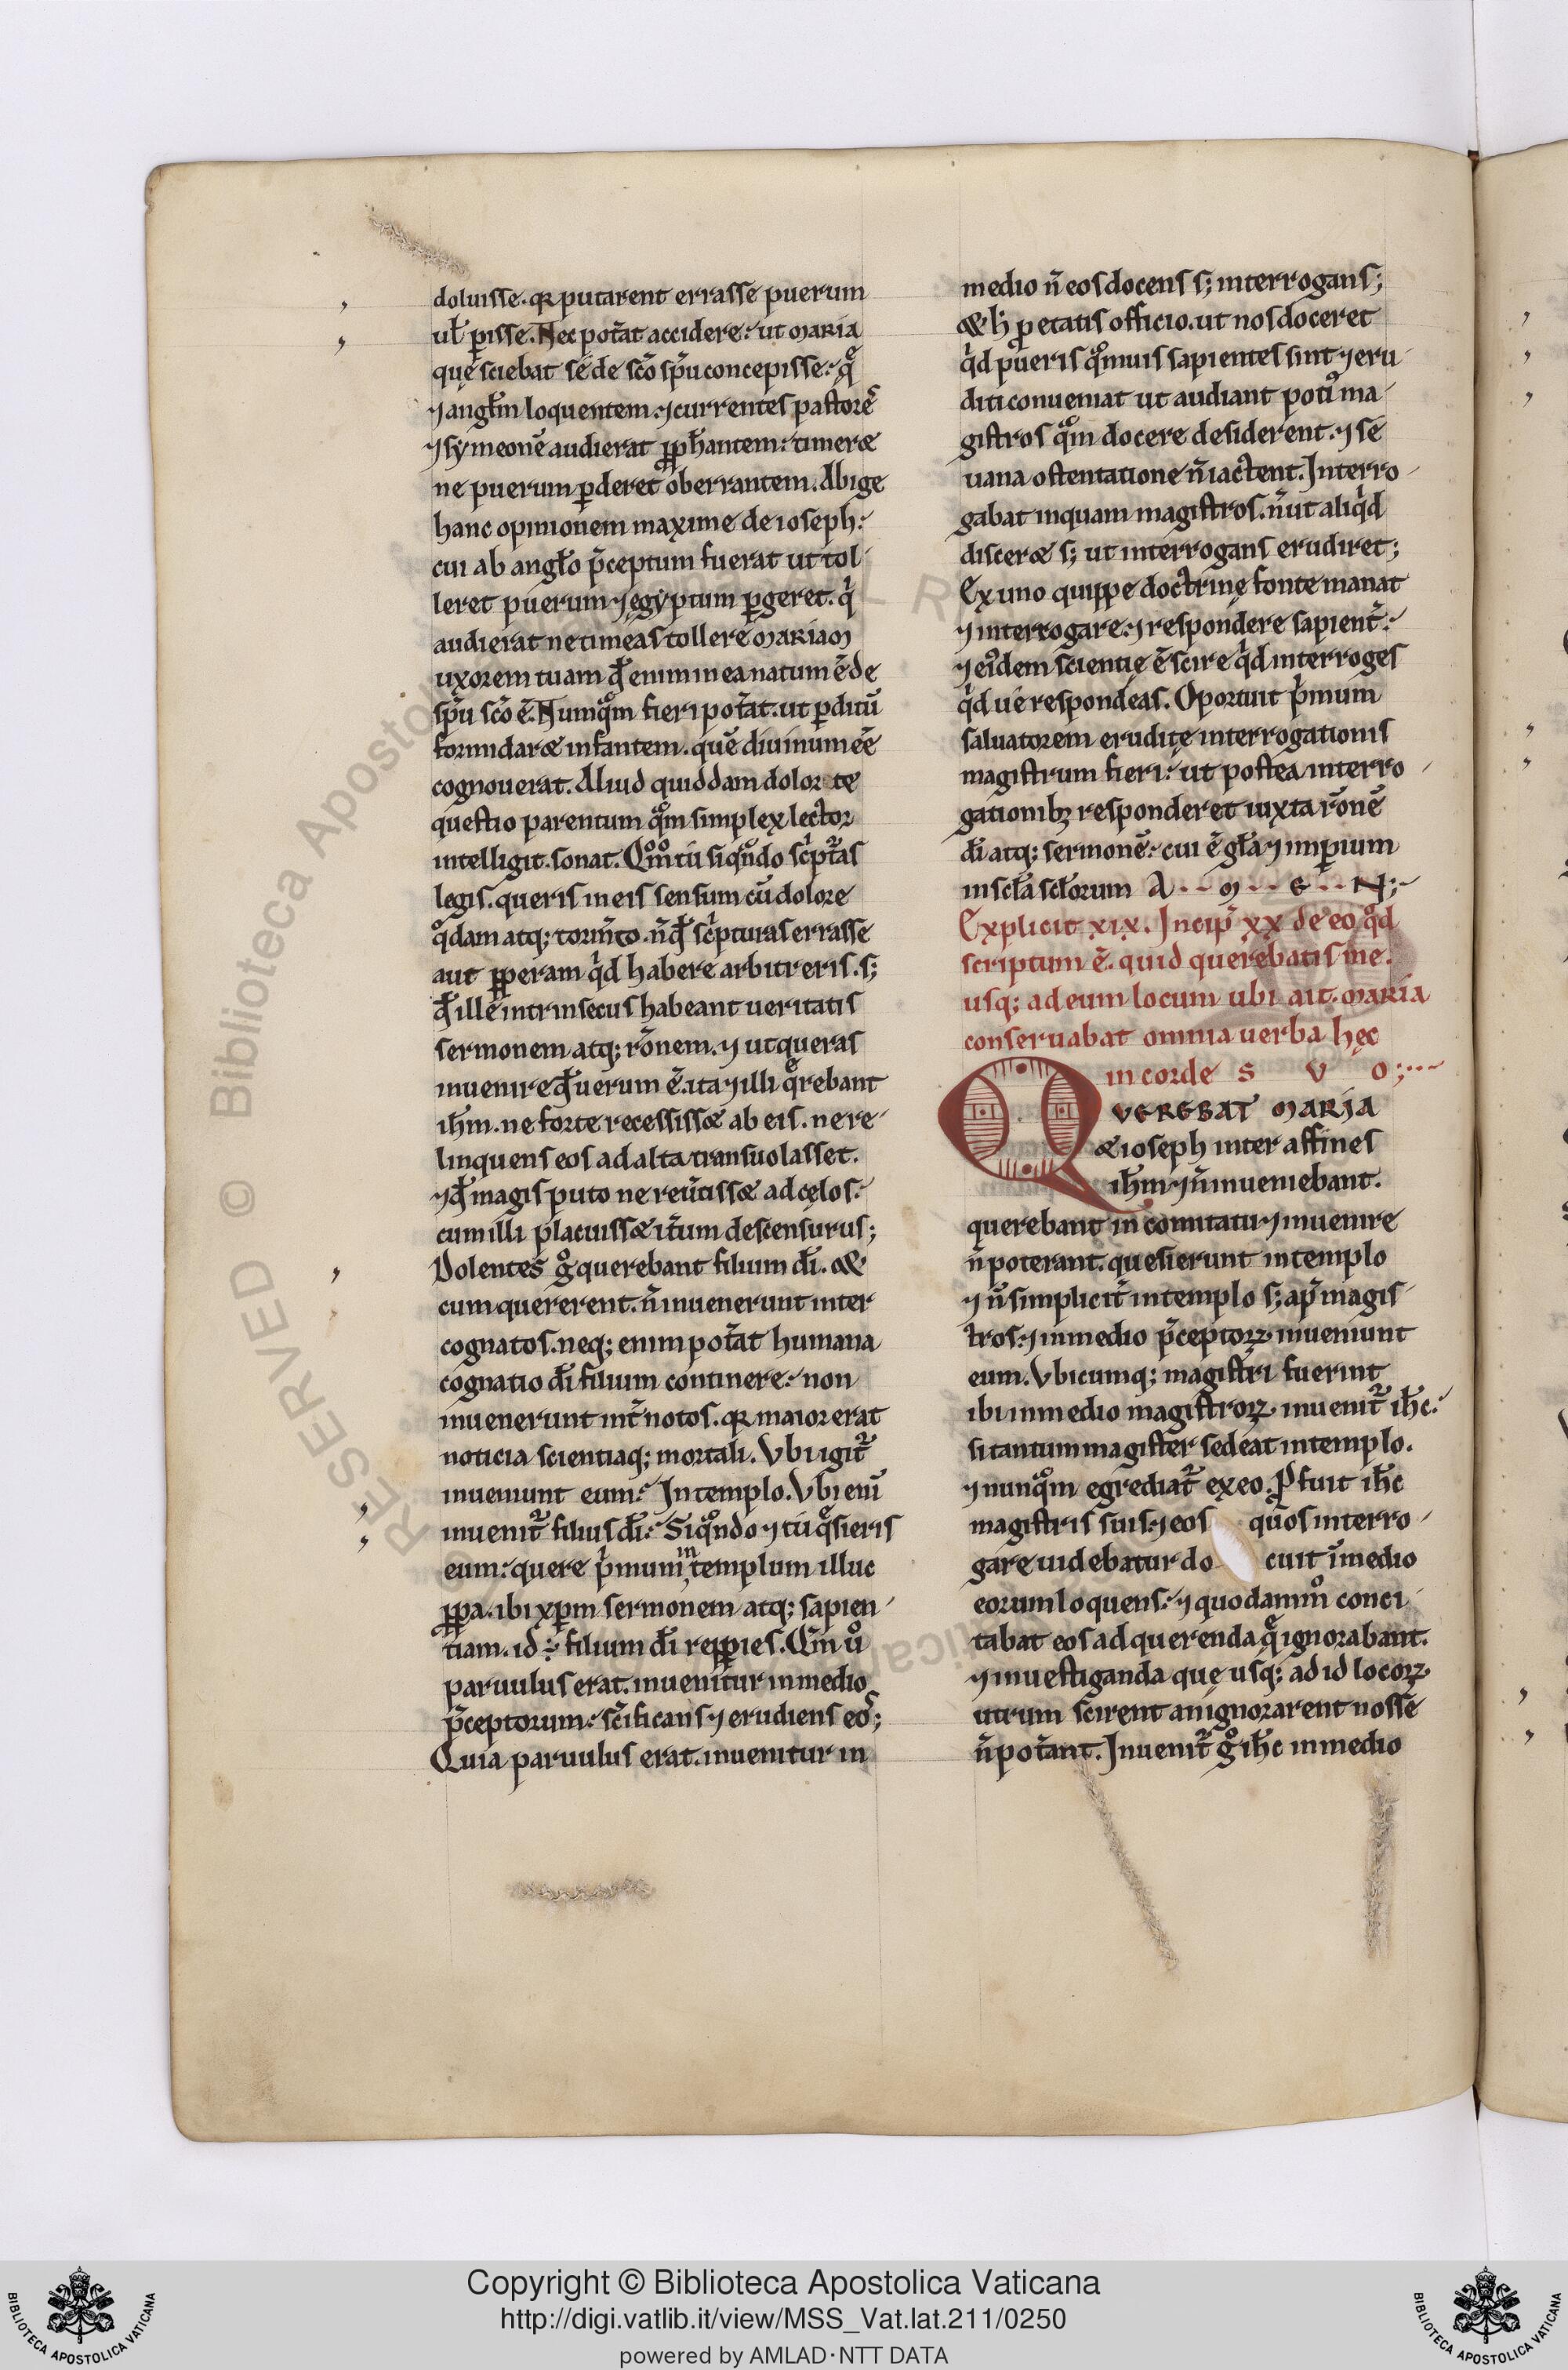 doluisse. qr putarent errasse puerum
ul̄ p̱isse. Nec pot̄at accidere: ut maria
quę sciebat se de sc̄o sp̄u concepisse: qͣ
⁊ angl̄m loquentem: ⁊ currentes pastores
⁊ symeonē audierat ꝓph̄antem: timeræ
ne puerum ꝑderet oberrantem. Abige
hanc opinionem maxime de ioseph:
cui ab angl̄o p̄ceptum fuerat ut tol
leret puerum ⁊ ęgyptum ꝑgeret. qͥ
audierat ne timeas tollere mariam
uxorem tuam qđ enim in ea natum ē de
sp̄u sc̄o ē. Numqͦm fieri pot̄at. ut ꝑditū
formidaræ infantem. quē diuinum eē
cognouerat. Aliud quiddam dolor te
questio parentum qͦm simplex lector
intelligit. sonat. Qͦmͦ tu siqͦndo scͥpt̄as
legis. queris in eis sensum cū dolore
qͦdam atq; torm̄to. n̄ qđ scͥpturas errasse
aut ꝑperam qͥd habere arbitreris. s;
qđ ille intrinsecus habeant ueritatis
sermonem atq; rōnem. ⁊ ut queras
inuenire qđ uerum ē. ita ⁊ illi qͣrebant
ih̄m. ne forte recessissæ ab eis. ne re
linquens eos ad alta transuolasset.
⁊ qđ magis puto ne reūtissæ ad cęlos:
cum illi placuissæ it̄um descensurus;
Dolentes gͦ querebant filium dī. &
cum quererent. n̄ inuenerunt inter
cognatos. neq; enim pot̄at humana
cognatio dī filium continere: non
inuenerunt int̄ notos. qr maior erat
noticia scientiaq; mortali. Vbi igit̄
inueniunt eum: In templo. Vbi enī
inuenit̄ filius dī: Siqͦndo ⁊ tu qͣsieris
eum: quere pͥmum in templum illuc
ꝓpa. ibi xp̄m sermonem atq; sapien
tiam. id ÷ filium dī repꝑies. Qm̄ uͦ
paruulus erat. inuenitur in medio
p̄ceptorum: sc̄ificans ⁊ erudiens eos;
Quia paruulus erat. inuenitur in
medio n̄ eos docens s; interrogans;
& h̄ ꝓ etatis officio. ut nos doceret
qͥd pueris qͦmuis sapientes sint ⁊ eru
diti conueniat ut audiant poti᷒ ma
gistros qͦm docere desiderent: ⁊ se
uana ostentatione n̄ iactent. Interro
gabat inquam magistros. n̄ ut aliqͥd
disceræ s; ut interrogans erudiret;
Ex uno quippe doctrinę fonte manat
⁊ interrogare: ⁊ respondere sapient̄:
⁊ ei᷒dem scientię ē scire qͥd interroges
qͥd ue respondeas. Oportuit pͥmum
saluatorem eruditę interrogationis
magistrum fieri: ut postea interro
gationib; responderet iuxta rōnē
dī atq; sermonē: cui ē gl̄a ⁊ imꝑium
in scl̄a scl̄orum A . . m . . e . . N;
Explicit xix. Incip̄ xx de eo qͦd
scriptum ē. quid querebatis me.
usq; ad eum locum ubi ait. maria
conseruabat omnia uerba hęc
in corde s u o;
QVEREBAT MARIA
& ioseph inter affines
ih̄m ⁊ n̄ inueniebant.
querebant in comitatu ⁊ inuenire
n̄ poterant. quesierunt in templo
⁊ n̄ simplicit̄ in templo s; ap̄ magis
tros: ⁊ in medio p̄ceptorꝝ inueniunt
eum. Vbicumq; magistri fuerint
ibi in medio magistrorꝝ inuenit̄ ih̄c:
si tantum magister sedeat in templo.
⁊ nunqͦm egrediat̄ ex eo. Pfuit ih̄c
magistris suis: ⁊ eos quos interro
gare uidebatur docuit ī medio
eorum loquens: ⁊ quodammͦ conci
tabat eos ad querenda qͣ ignorabant.
⁊ inuestiganda quę usq; ad id locorꝝ
utrum scirent an ignorarent nosse
n̄ pot̄ant. Inuenit̄ gͦ ih̄c in medio
Copyright © Biblioteca Apostolica Vaticana
http://digi.vatlib.it/view/MSS_Vat.lat.211/0250
powered by AMLAD·NTT DATA